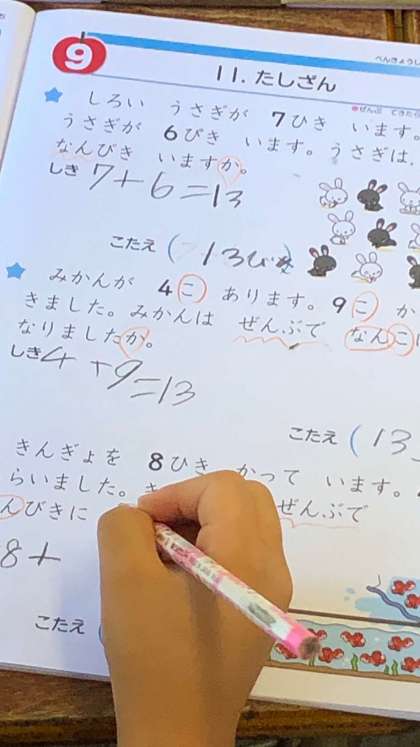 べんきょうし
9
11. たしざん
ぜんぶ できたら
しろい うさぎが 7ひき います。
うさぎが 6ぴき います。うさぎは
なんびき いますか。
しき 7+6=13
こたえ (13びき)
みかんが 4こ あります。9こ か
きました。みかんは ぜんぶで なんこ
なりましたか。
しき 4+9=13
こたえ (13
きんぎょを 8ひき かって います。
らいました。き
んびきに ぜんぶで
8+
こたえ (